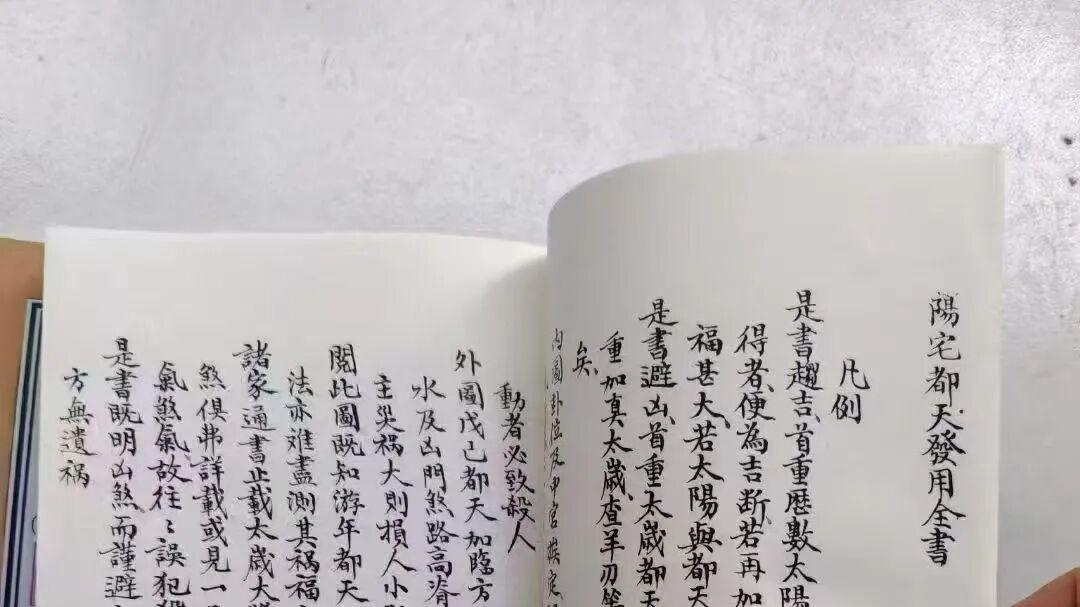 陽宅都天發用全書
凡例
是書趨吉首重歷數太陽
得者便為吉斷若再加
福甚大若太陽與都天
是書避凶首重太歲都天
重加真太歲查羊刃
矣
內圖卦位及中宮
動者必致殺人
外圖戊己都天加臨方
水及凶門煞路高脊
主災禍大則損人小
閱此圖既知游年都天
法亦難盡測其禍福
諸家通書止載太歲大
煞俱弗詳載或見一
氣煞氣故往〻誤犯
是書既明凶煞而謹避
方無遺禍